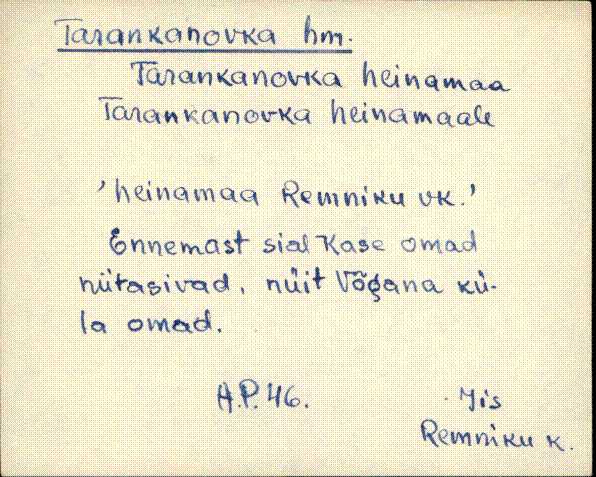 Tarankanovka hm.
Tarankanovka heinamaa
Tarankanovka heinamaale
'heinamaa Remniku vk.'
Ennemast sial Kase omad
nütasivad, nüit Võgana kü-
la omad.
A.P. 46.
Jis
Remniku k.